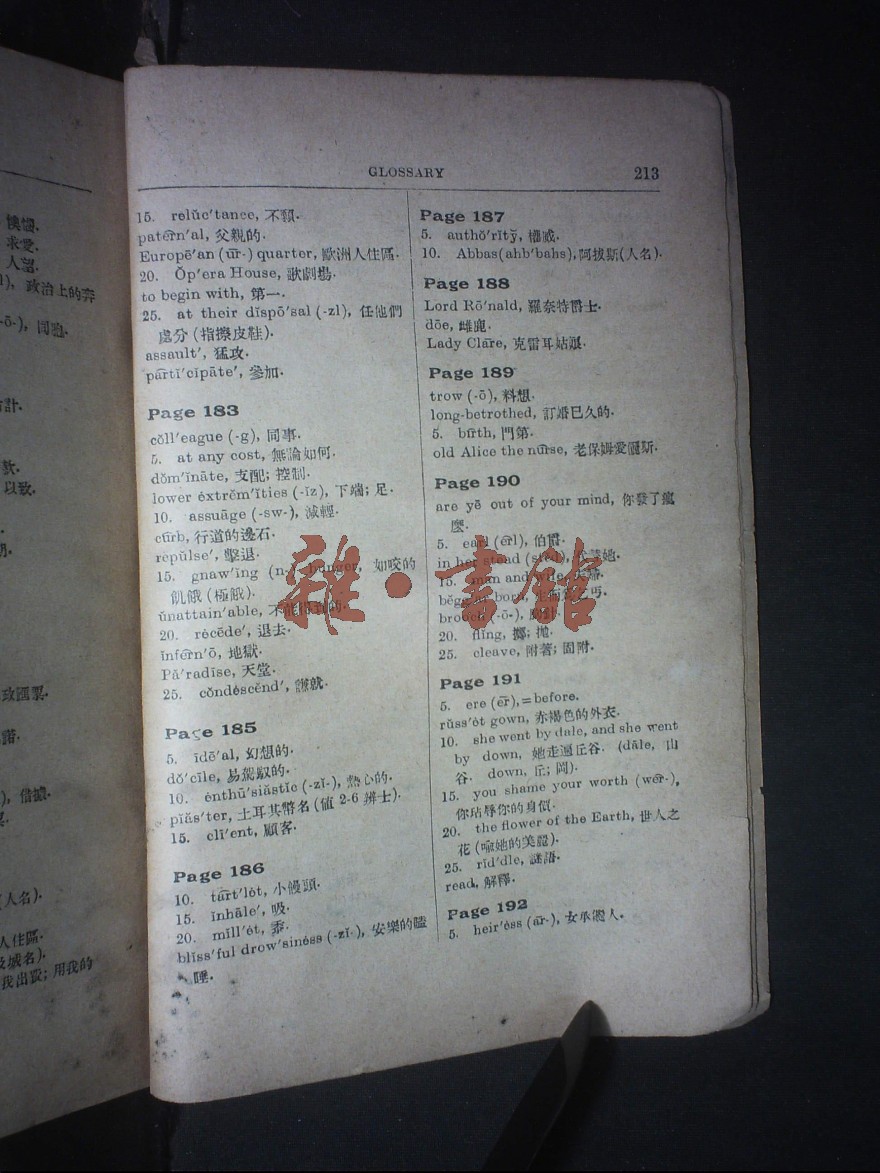 GLOSSARY 213
15. relŭc′tance, 不願.
patẽrn′al, 父親的.
Europē′an (ūr-) quarter, 歐洲人住區.
20. Ŏp′era House, 歌劇場.
to begin with, 第一.
25. at their dĭspō′sal (-zl), 任他們
處分 (指擦皮鞋).
assault′, 猛攻.
pärtĭ′cĭpāte′, 參加.
Page 183
cŏll′eague (-g), 同事.
5. at any cost, 無論如何.
dŏm′ĭnāte, 支配; 控制.
lower ėxtrĕm′ĭties (-ĭz), 下端; 足.
10. assuāge (-sw-), 減輕.
cûrb, 行道的邊石.
rėpŭlse′, 擊退.
15. gnaw′ĭng hunger, 如咬的
飢餓 (極餓).
ŭnattain′able,
20. rėcēde′, 退去.
ĭnfẽrn′ō, 地獄.
Pă′radīse, 天堂.
25. cŏndėscĕnd′, 謙就.
Page 185
5. īdē′al, 幻想的.
dŏ′cīle, 易駕馭的.
10. ėnthū′sĭăstĭc (-zĭ-), 熱心的.
pĭăs′ter, 土耳其幣名 (值 2-6 辨士).
15. clī′ent, 顧客.
Page 186
10. tärt′lėt, 小饅頭.
15. ĭnhāle′, 吸.
20. mĭll′ėt, 黍.
blĭss′ful drow′sĭnėss (-zĭ-), 安樂的瞌
睡.
Page 187
5. authŏ′rĭtў, 權威.
10. Abbas (ahb′bahs), 阿拔斯(人名).
Page 188
Lord Rō′nald, 羅奈特爵士.
dōe, 雌鹿.
Lady Clāre, 克雷耳姑娘.
Page 189
trow (-ō), 料想.
long-betrothed, 訂婚已久的.
5. bĩrth, 門第.
old Alice the nûrse, 老保姆愛麗斯.
Page 190
are yē out of your mind, 你發了瘋
麼.
5. earl (ẽrl), 伯爵.
in her stead (stĕd), 她.
15. man and wife,
bĕgg born,
brooch (-ō-),
20. flĭng, 擲; 拋.
25. cleave, 附著; 固附.
Page 191
5. ere (ēr), = before.
rŭss′ėt gown, 赤褐色的外衣.
10. she went by dale, and she went
by down, 她走過丘谷. (dāle, 山
谷. down, 丘; 岡).
15. you shame your worth (wẽr-),
你玷辱你的身價.
20. the flower of the Earth, 世人之
花 (喻她的美麗).
25. rĭd′dle, 謎語.
read, 解釋.
Page 192
5. heir′ėss (ār-), 女承襲人.
求愛.
政治上的奔
同胞.
計.
以致.
借據.
(人名).
人住區.
城名).
用我的
雜·書館